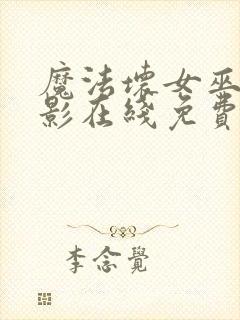 魔法壞女巫
影在綫免費
李念覺